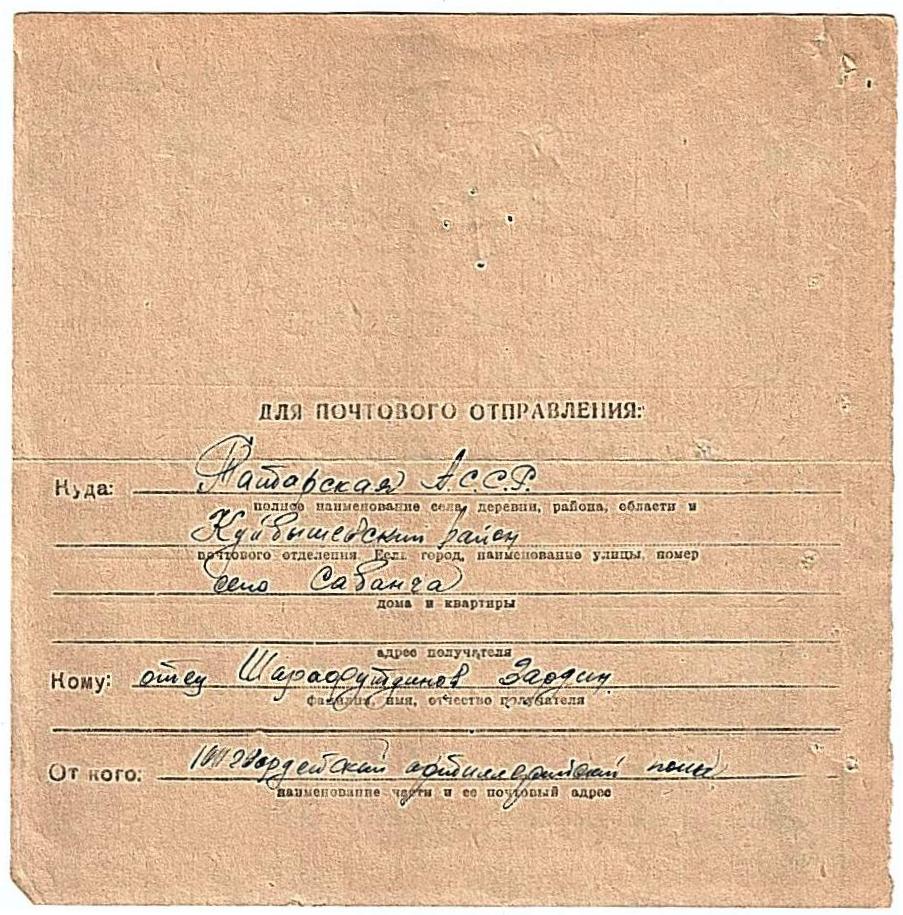 ДЛЯ ПОЧТОВОГО ОТПРАВЛЕНИЯ:
Куда: Татарская А.С.С.Р.
полное наименование села, деревни, района, области и
Куйбышевский район
почтового отделения. Если город, наименование улицы, номер
село Сабанча
дома и квартиры
адрес получателя
Кому: отец Шарафутдинов
фамилия, имя, отчество получателя
От кого: гвардейский артиллерийский полк
наименование части и ее почтовый адрес